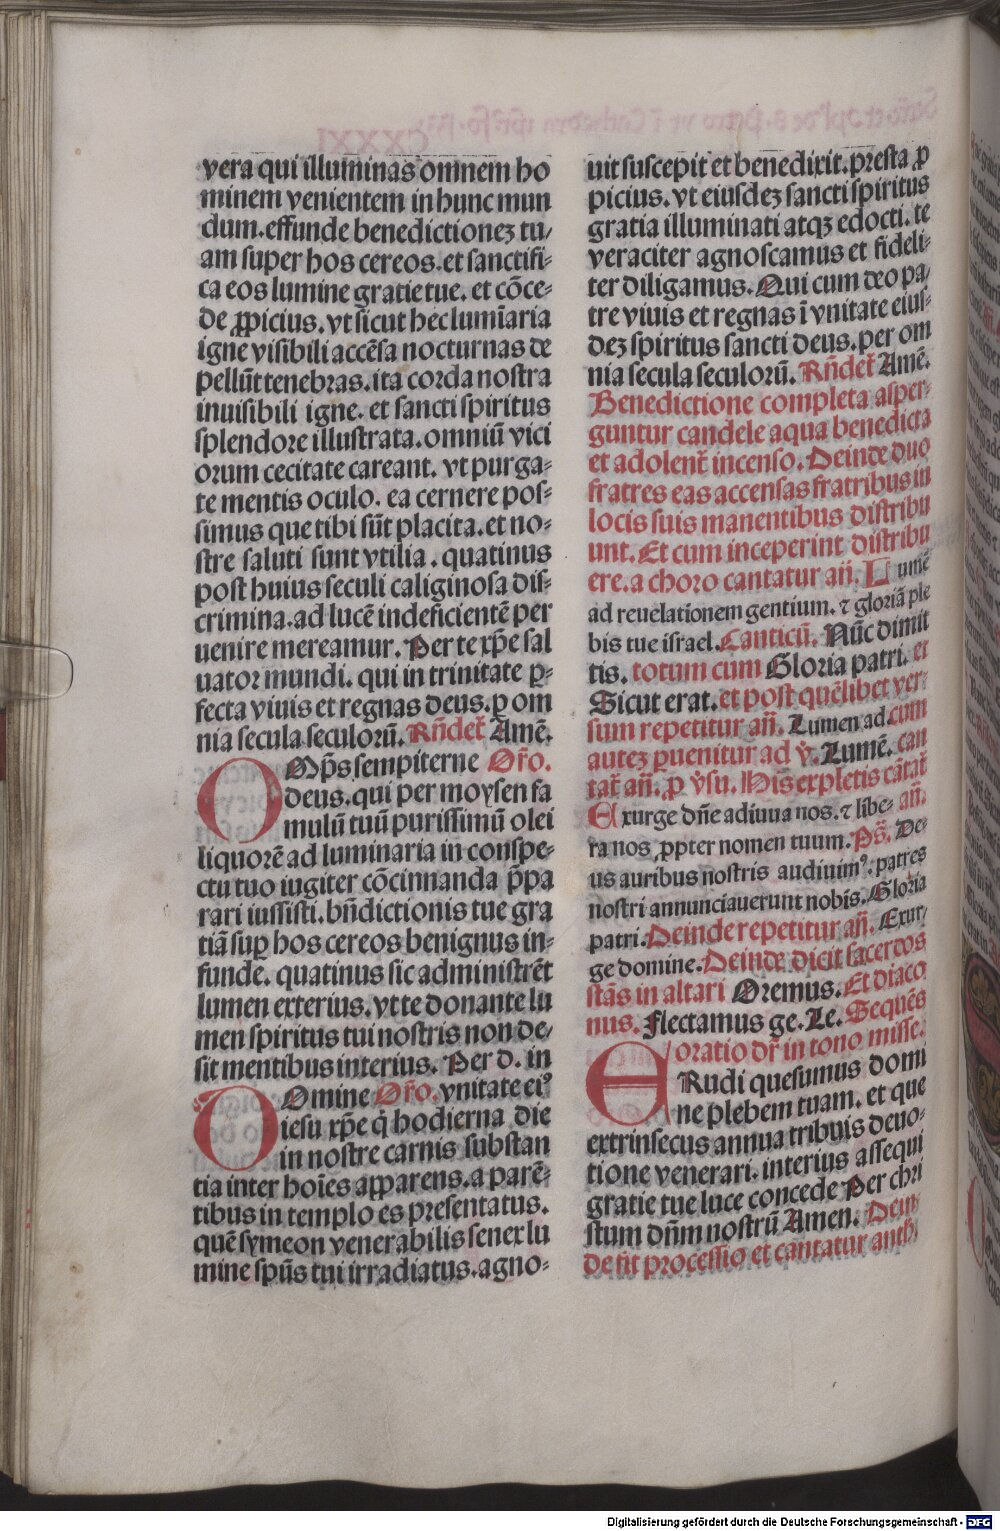 vera qui illuminas omnem ho
minem venientem in hunc mun
dum.effunde benedictionez tu/
am super hos cereos.et sanctifi-
ca eos lumine gratie tue. et cōce-
de ꝓpicius.vt sicut hec lumīaria
igne visibili accēsa nocturnas de
pellūt tenebras.ita corda nostra
inuisibili igne. et sancti spiritus
splendore illustrata.omniū vici
orum cecitate careant. vt purga-
te mentis oculo. ea cernere pos-
simus que tibi sūt placita.et no-
stre saluti sunt vtilia. quatinus
post huius seculi caliginosa dis-
crimina.ad lucē indeficientē per
uenire mereamur. Per te xp̄e sal
uator mundi. qui in trinitate ꝑ-
fecta viuis et regnas deus.ꝑ om
nia secula seculorū. Rn̄det̄ Amē.
OMp̄s sempiterne Or̄o.
deus.qui per moysen fa
mulū tuū purissimū olei
liquorē ad luminaria in conspe-
ctu tuo iugiter cōcinnanda p̄pa
rari iussisti.bn̄dictionis tue gra
tiā suꝑ hos cereos benignus in-
funde. quatinus sic administrēt
lumen exterius. vt te donante lu
men spiritus tui nostris non de/
sit mentibus interius. Per d. in
DOmine Or̄o. vnitate eiꝰ
iesu xp̄e q̇ hodierna die
in nostre carnis substan
tia inter hoīes apparens.a parē-
tibus in templo es presentatus.
quē symeon venerabilis senex lu
mine spūs tui irradiatus.agno-
uit suscepit et benedixit.presta ꝓ
picius. vt eiusdez sancti spiritus
gratia illuminati atqꝫ edocti. te
veraciter agnoscamus et fideli-
ter diligamus. Qui cum deo pa/
tre viuis et regnas ī vnitate eius-
dez spiritus sancti deus. per om
nia secula seculorū. Rn̄det̄ Amē.
Benedictione completa asper-
guntur candele aqua benedicta
et adolent̄ incenso. Deinde duo
fratres eas accensas fratribus in
locis suis manentibus distribu
unt. Et cum inceperint distribu
ere.a choro cantatur an̄. Lumē
ad reuelationem gentium. ⁊ gloriā ple
bis tue israel. Canticū. Nūc dimit
tis. totum cum Gloria patri. et
Sicut erat. et post quēlibet ver-
sum repetitur an̄. Lumen ad.cum
autez ꝑuenitur ad v̄. Lumē. can
tat̄ an̄. ꝓ v̄su. His expletis cātat̄
Exurge dn̄e adiuua nos. ⁊ libe- an̄.
ra nos ꝓpter nomen tuum. Ps̄. De-
us auribus nostris audiuimꝰ: patres
nostri annunciauerunt nobis. Gloria
patri. Deinde repetitur an̄. Exur/
ge domine. Deinde dicit sacerdos
stās in altari Oremus. Et diaco
nus. Flectamus ge. Le. Sequēs
oratio dr̄ in tono misse.
ERudi quesumus domi
ne plebem tuam. et que
extrinsecus annua tribuis deuo-
tione venerari. interius assequi
gratie tue luce concede Per chri
stum dn̄m nostrū Amen. Dein
de fit processio et cantatur anth
Digitalisierung gefördert durch die Deutsche Forschungsgemeinschaft - DFG